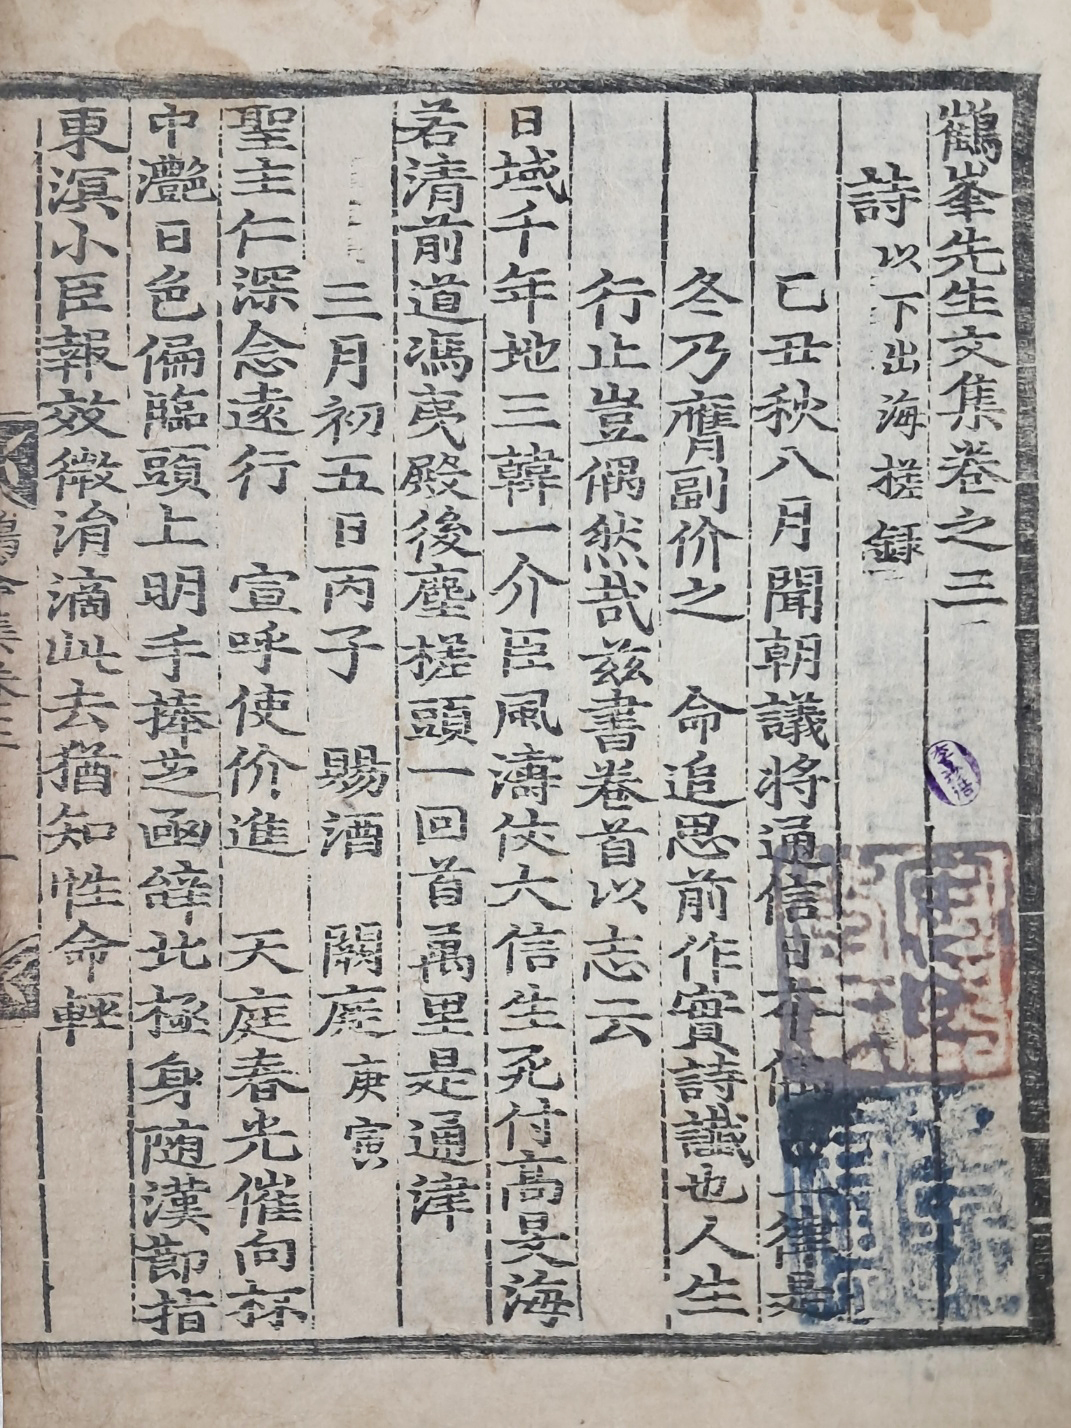 鶴峯先生文集卷之三
詩 以下出海槎錄
己丑秋八月聞朝議將通信日本偶 一律是
冬乃膺副价之 命追思前作實詩讖也人生
行止豈偶然哉茲書卷首以志云
日域千年地三韓一介臣風濤仗大信生死付高旻海
若清前道馮夷殿後塵槎頭一回首萬里是通津
三月初五日丙子 賜酒 闕庭 庚寅
聖主仁深念遠行 宣呼使价進 天庭春光催向杯
中灩日色偏臨頭上明手捧芝函辞北極身随漢節指
東溟小臣報效微涓滴此去猶知性命輕